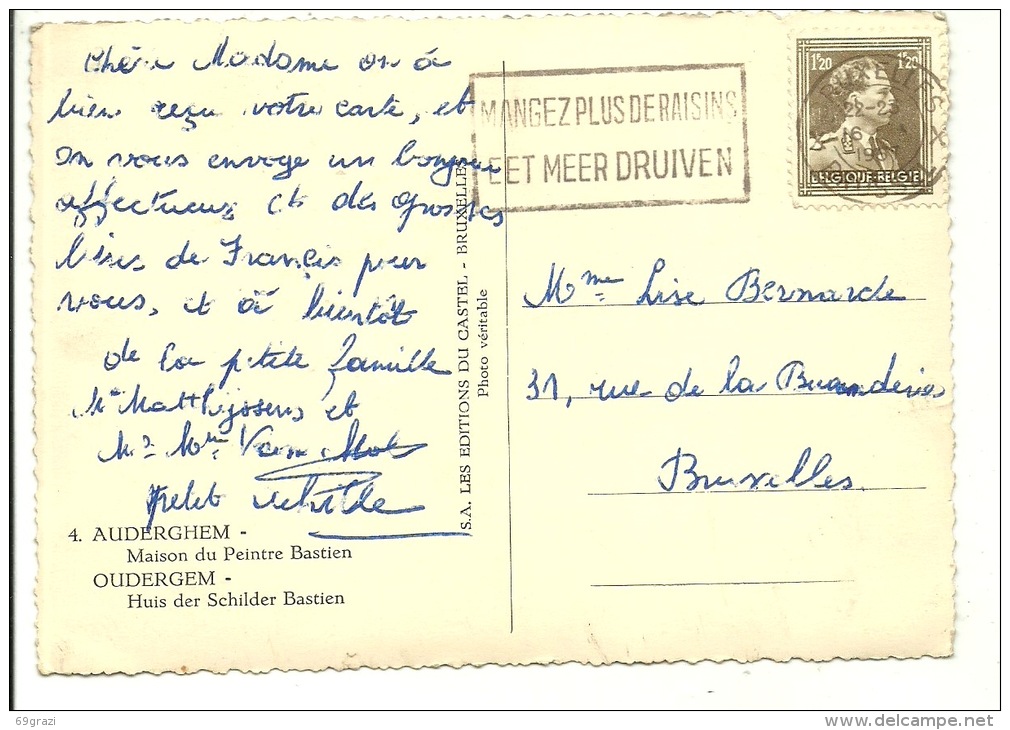 Chère Madame on a
bien reçu votre carte, et
on vous envoye un bonjour
affectueux et des grosses
bises de Francis pour
vous, et à bientôt
de la petite famille
Mr Matthyssens et
Mr Mme Van Mol
petit
4. AUDERGHEM -
Maison du Peintre Bastien
OUDERGEM -
Huis der Schilder Bastien
S.A. LES EDITIONS DU CASTEL - BRUXELLES
Photo véritable
MANGEZ PLUS DE RAISINS
EET MEER DRUIVEN
1F20 1F20
BRUXELLES X
22-2
16
BRUSSEL
BELGIQUE-BELGIE
Mme Lise Bernarde
31, rue de la Buanderies
Bruxelles.
69grazi
www.delcampe.net